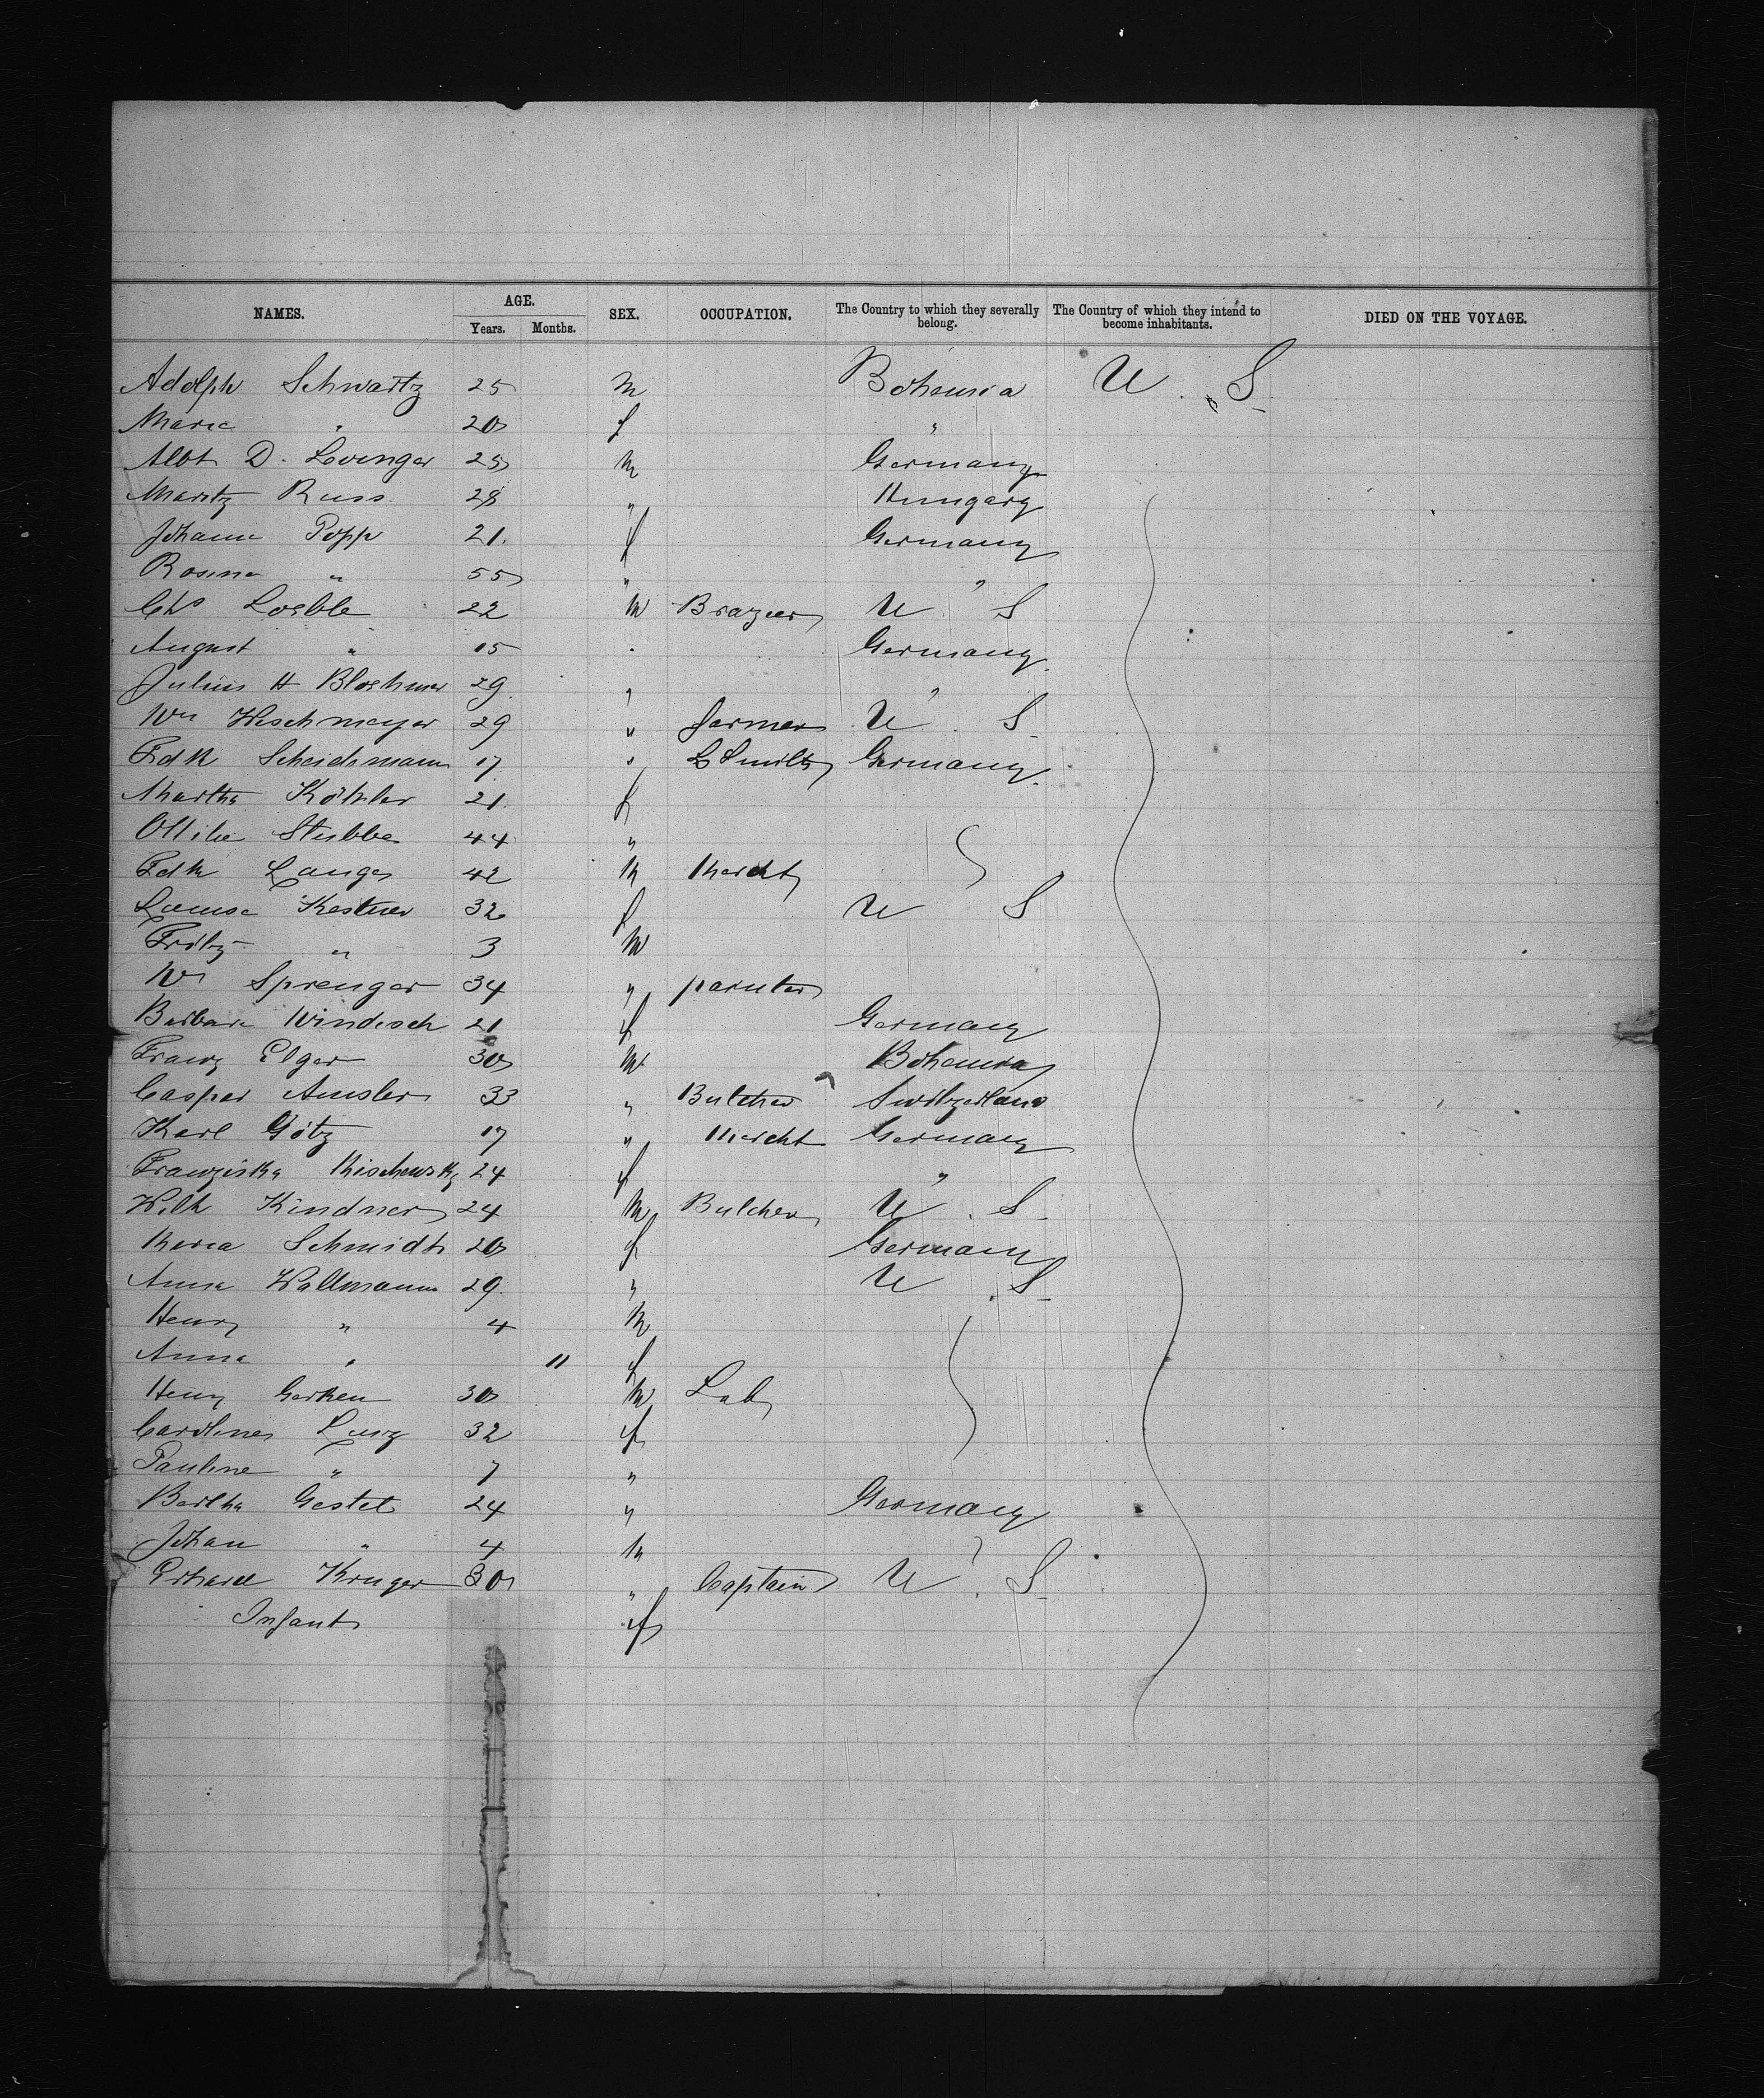 NAMES. AGE. Years. Months. SEX. OCCUPATION. The Country to which they severally belong. The Country of which they intend to become inhabitants. DIED ON THE VOYAGE.
Adolph Schwartz 25 m Bohemia U. S.
Marie " 20 f "
Albt D. Levenger 25 m Germany
Moritz Russ 28 " Hungary
Johann Popp 21. f Germany
Rosina " 55 " "
Chs Loeble 22 m Brazier U S
August " 15 " Germany
Julius H Bloehmer 29 " "
Wm Wischmeyer 29 " farmer U. S.
Fdk Scheidemann 17 " Germany
Martha Köhler 21. f
Ottilie Stubbe 44 "
Fdk Lange 42 m Mercht
Louise Kestner 32 f U S
Fritz " 3 m
Wm Sprenger 34 " painter
Barbara Windisch 21 f Germany
Franz Elger 30 m Bohemia
Casper Amsler 33 " Butcher Switzerland
Karl Götz 17 " Mercht Germany
Franziska 24 f "
Wilh Kindner 24 m Butcher U. S.
Maria Schmidt 20 f Germany
Anna Wallmann 29. " U. S.
Henry " 4 m
Anna " 11 f
Henry Gerken 30 m Lab
Caroline Lurz 32 f
Pauline " 7 "
Bertha Gestel 24 " Germany
Johan " 4 m "
Erhard Kruger 30 " Captain U. S.
Infant f